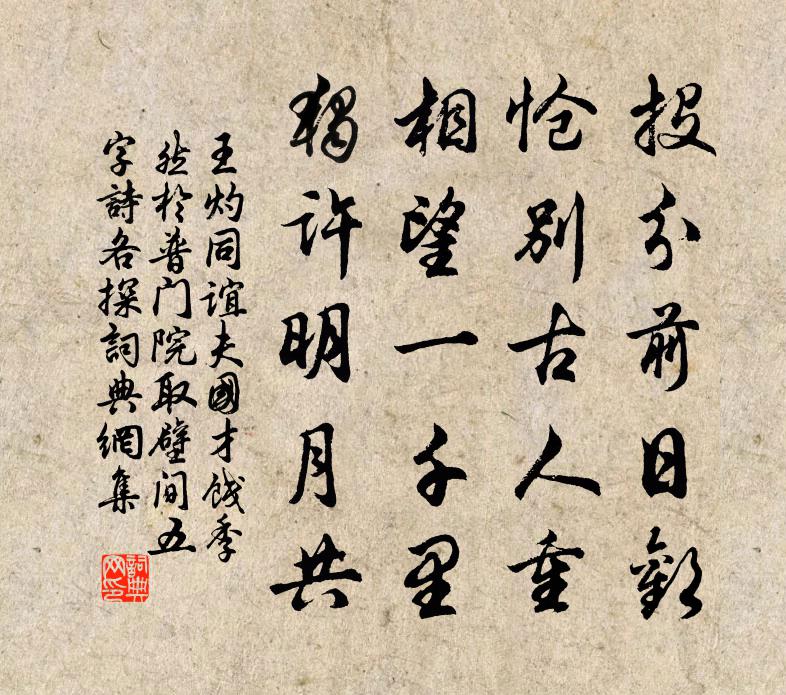 投分前日歡
愴別古人重
相望一千里
獨許明月共
王灼同誼夫國才餞季
然於普门院取壁间五
字詩各探詞典網集
詞典
网印